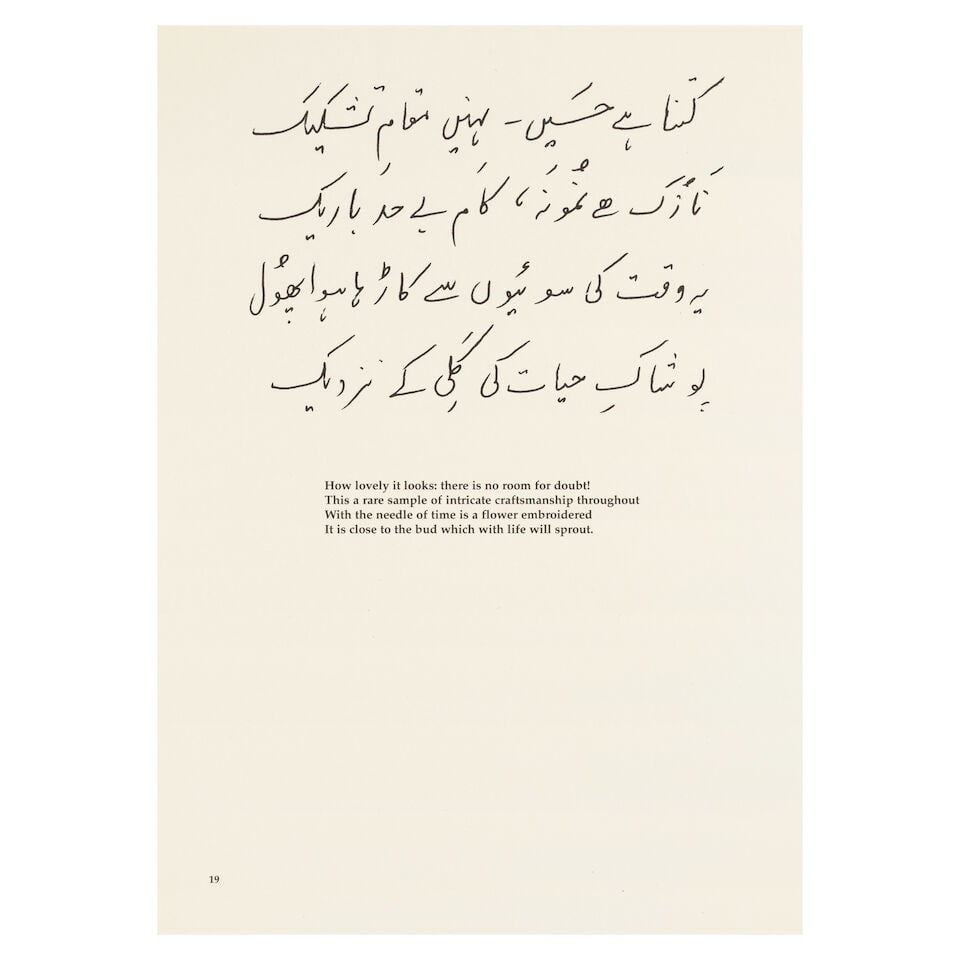 کتنا ہے حسَیں - نہیں مقامِ تشکیک
نَازُک ہے نمُونَہ، کَام بے حَد باریک
یہ وقت کی سوئیوں سے کاڑھا ہوا پھُول
پوشاکِ حیات کی کَلِی کے نزدیک
How lovely it looks: there is no room for doubt!
This a rare sample of intricate craftsmanship throughout
With the needle of time is a flower embroidered
It is close to the bud which with life will sprout.
19